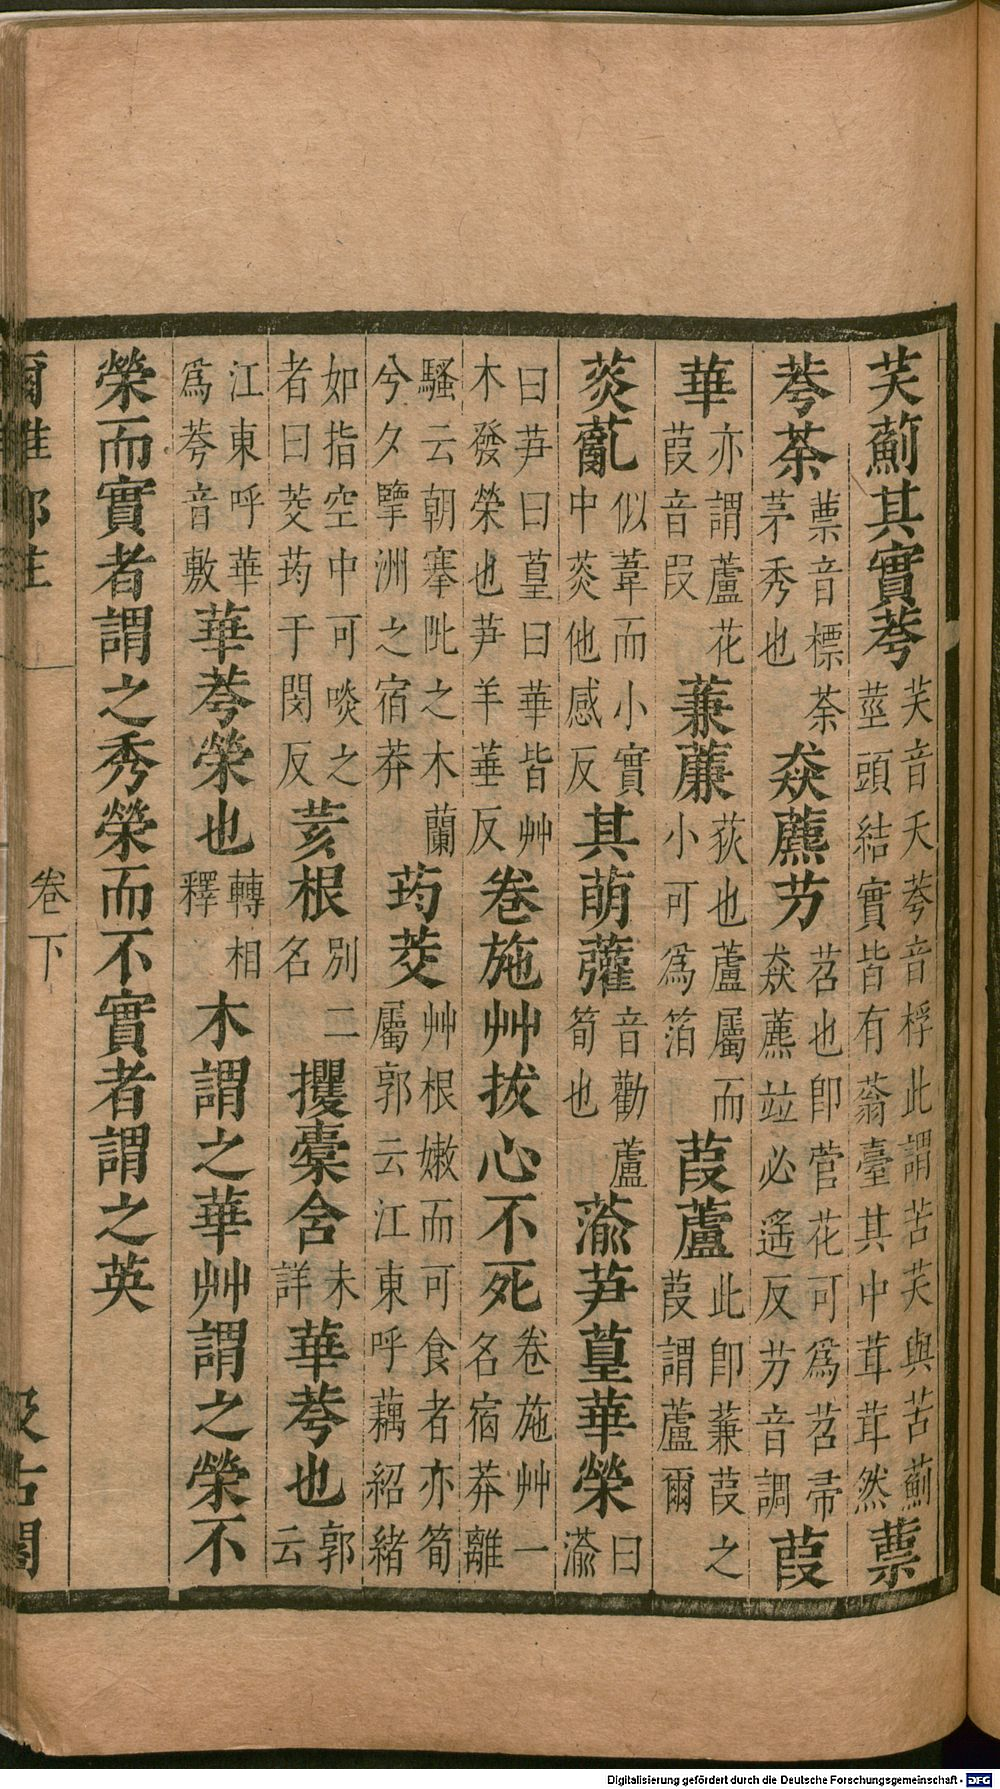 芙薊其實荂芙音夭荂音桴此謂苦芙與苦薊莖頭結實皆有蓊臺其中茸茸然蔈
荂荼蔈音標荼茅秀也猋藨芀苕也卽菅花可爲苕帚猋藨竝必遙反芀音調葭
華亦謂蘆花葭音叚蒹薕荻也蘆屬而小可爲箔葭蘆此卽蒹葭之葭謂蘆爾
菼薍似葦而小實中菼他感反其萌虇音勸蘆筍也蕍芛葟華榮曰蕍
曰芛曰葟曰華皆艸木發榮也芛羊菙反卷施艸拔心不死卷施艸一名宿莽離
騷云朝搴阰之木蘭兮夕擥洲之宿莽荺茭艸根嫩而可食者亦筍屬郭云江東呼藕紹緒
如指空中可啖之者曰茭荺于閔反荄根別二名攫橐含未詳華荂也郭云
江東呼華爲荂音敷華荂榮也轉相釋木謂之華艸謂之榮不
榮而實者謂之秀榮而不實者謂之英
爾雅鄭注 卷下 汲古閣
Digitalisierung gefördert durch die Deutsche Forschungsgemeinschaft - DFG